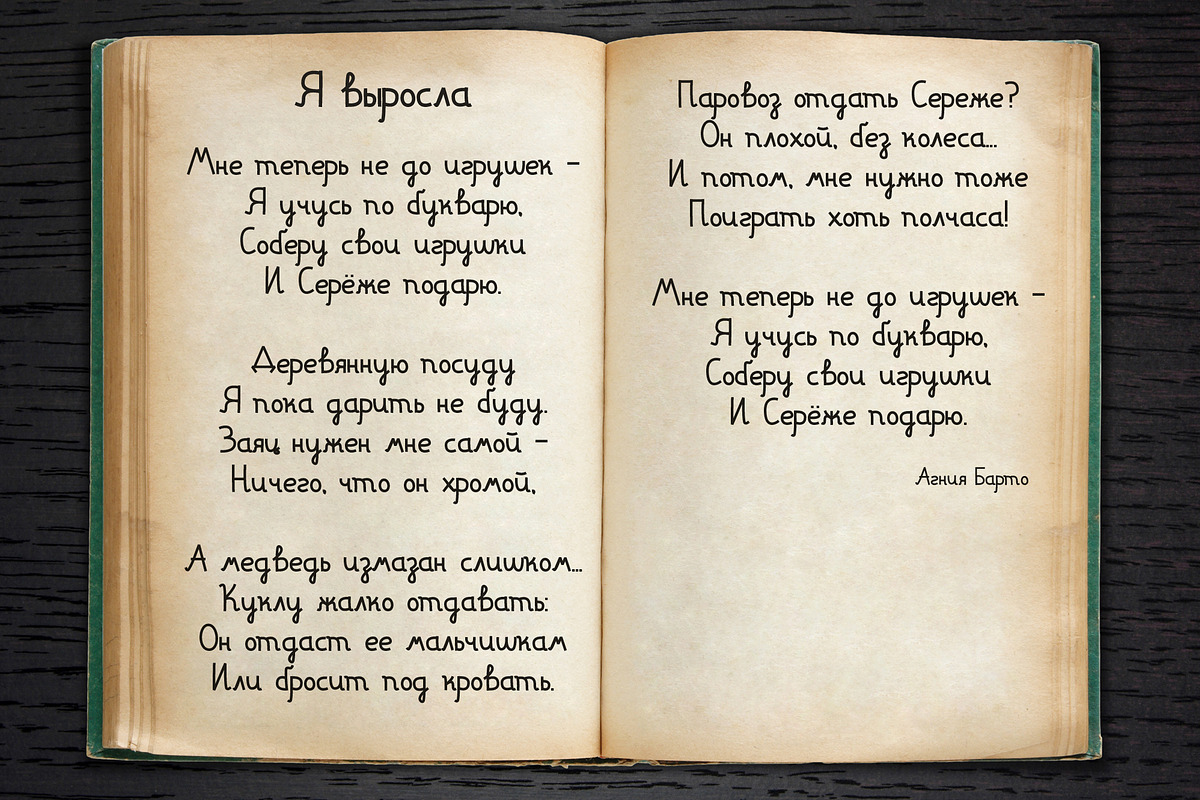 Я выросла
Мне теперь не до игрушек -
Я учусь по букварю,
Соберу свои игрушки
И Серёже подарю.
Деревянную посуду
Я пока дарить не буду.
Заяц нужен мне самой -
Ничего, что он хромой,
А медведь измазан слишком...
Куклу жалко отдавать:
Он отдаст ее мальчишкам
Или бросит под кровать.
Паровоз отдать Сереже?
Он плохой, без колеса...
И потом, мне нужно тоже
Поиграть хоть полчаса!
Мне теперь не до игрушек -
Я учусь по букварю,
Соберу свои игрушки
И Серёже подарю.
Агния Барто